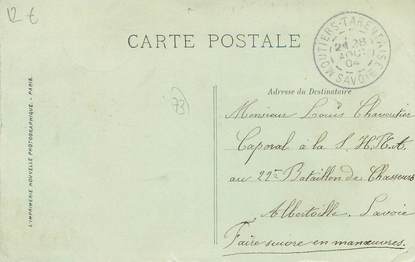 12 €
CARTE POSTALE
MOUTIERS-TARENTAISE
28
04
SAVOIE
Adresse du Destinataire
73
Monsieur Louis
Caporal à la S. H. R.
au 22e Bataillon de Chasseurs
Albertville. Savoie
Faire suivre en manœuvres.
L'IMPRIMERIE NOUVELLE PHOTOGRAPHIQUE - PARIS